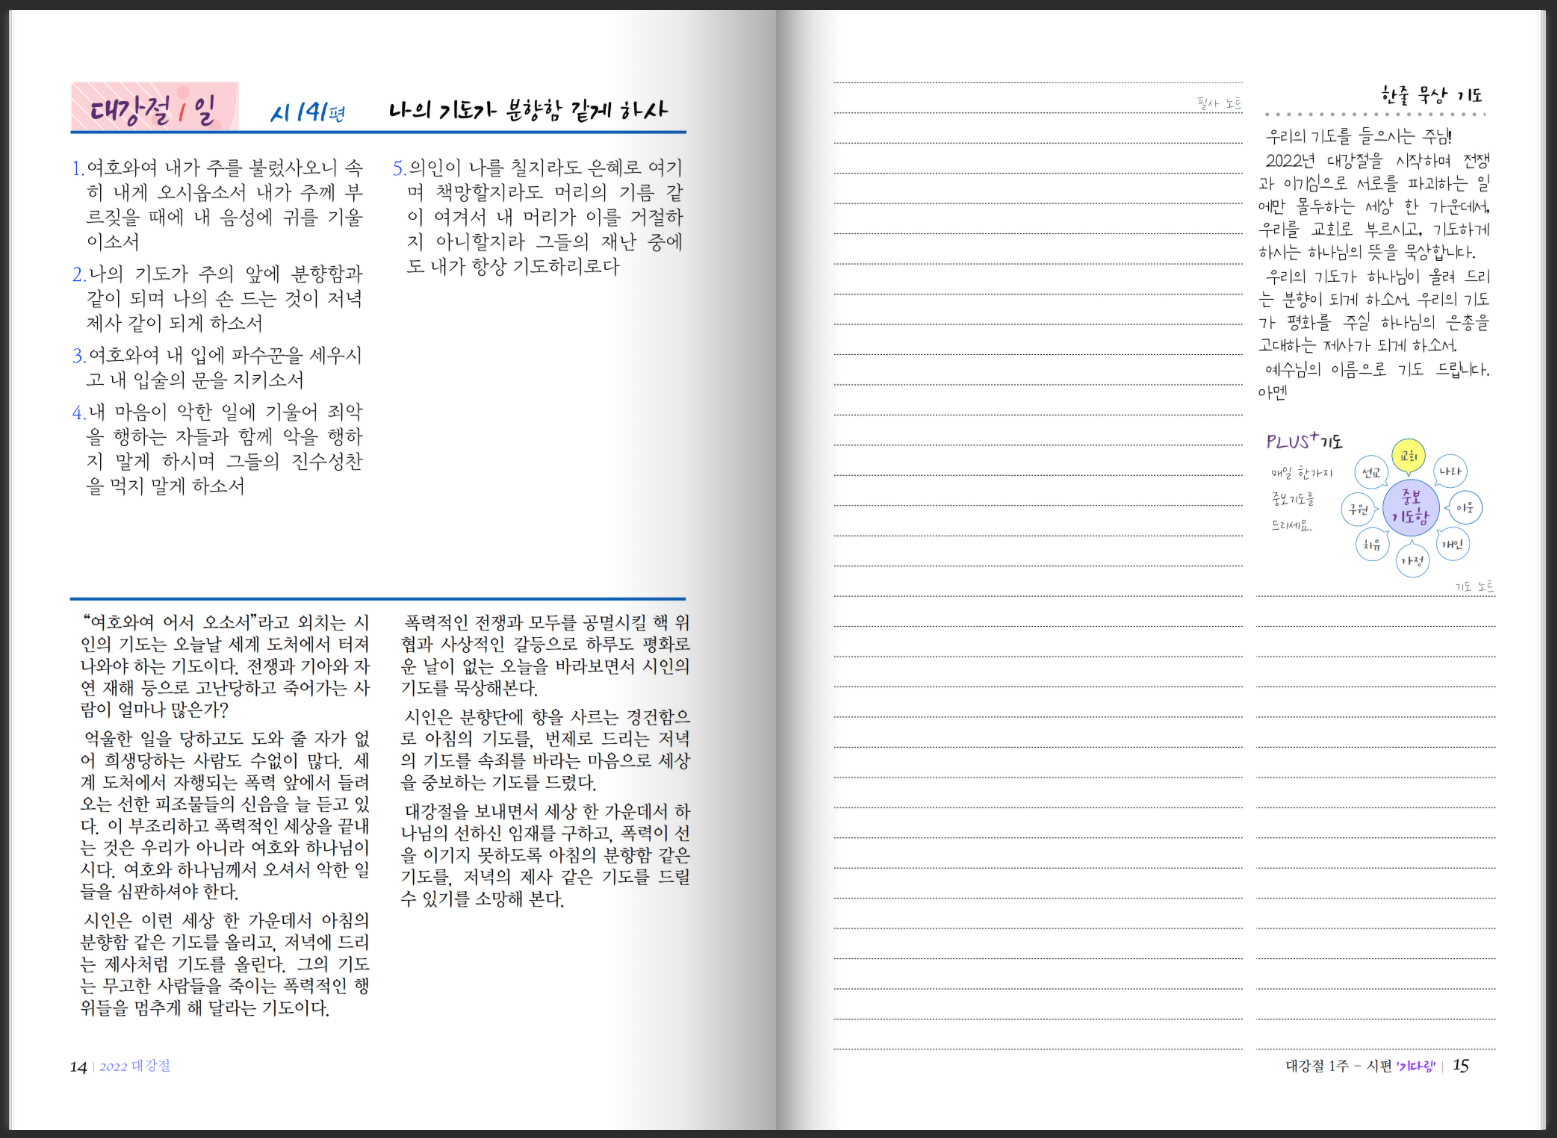 대강절 1 일
시 141편
나의 기도가 분향함 같게 하사
1.여호와여 내가 주를 불렀사오니 속
히 내게 오시옵소서 내가 주께 부
르짖을 때에 내 음성에 귀를 기울
이소서
2.나의 기도가 주의 앞에 분향함과
같이 되며 나의 손 드는 것이 저녁
제사 같이 되게 하소서
3.여호와여 내 입에 파수꾼을 세우시
고 내 입술의 문을 지키소서
4.내 마음이 악한 일에 기울어 죄악
을 행하는 자들과 함께 악을 행하
지 말게 하시며 그들의 진수성찬
을 먹지 말게 하소서
5.의인이 나를 칠지라도 은혜로 여기
며 책망할지라도 머리의 기름 같
이 여겨서 내 머리가 이를 거절하
지 아니할지라 그들의 재난 중에
도 내가 항상 기도하리로다
“여호와여 어서 오소서”라고 외치는 시
인의 기도는 오늘날 세계 도처에서 터져
나와야 하는 기도이다. 전쟁과 기아와 자
연 재해 등으로 고난당하고 죽어가는 사
람이 얼마나 많은가?
억울한 일을 당하고도 도와 줄 자가 없
어 희생당하는 사람도 수없이 많다. 세
계 도처에서 자행되는 폭력 앞에서 들려
오는 선한 피조물들의 신음을 늘 듣고 있
다. 이 부조리하고 폭력적인 세상을 끝내
는 것은 우리가 아니라 여호와 하나님이
시다. 여호와 하나님께서 오셔서 악한 일
들을 심판하셔야 한다.
시인은 이런 세상 한 가운데서 아침의
분향함 같은 기도를 올리고, 저녁에 드리
는 제사처럼 기도를 올린다. 그의 기도
는 무고한 사람들을 죽이는 폭력적인 행
위들을 멈추게 해 달라는 기도이다.
폭력적인 전쟁과 모두를 공멸시킬 핵 위
협과 사상적인 갈등으로 하루도 평화로
운 날이 없는 오늘을 바라보면서 시인의
기도를 묵상해본다.
시인은 분향단에 향을 사르는 경건함으
로 아침의 기도를, 번제로 드리는 저녁
의 기도를 속죄를 바라는 마음으로 세상
을 중보하는 기도를 드렸다.
대강절을 보내면서 세상 한 가운데서 하
나님의 선하신 임재를 구하고, 폭력이 선
을 이기지 못하도록 아침의 분향함 같은
기도를, 저녁의 제사 같은 기도를 드릴
수 있기를 소망해 본다.
14 | 2022 대강절
필사 노트
한줄 묵상 기도
우리의 기도를 들으시는 주님!
2022년 대강절을 시작하며 전쟁
과 이기심으로 서로를 파괴하는 일
에만 몰두하는 세상 한 가운데서,
우리를 교회로 부르시고, 기도하게
하시는 하나님의 뜻을 묵상합니다.
우리의 기도가 하나님이 올려 드리
는 분향이 되게 하소서. 우리의 기도
가 평화를 주실 하나님의 은총을
고대하는 제사가 되게 하소서.
예수님의 이름으로 기도 드립니다.
아멘
PLUS+기도
매일 한가지
중보기도를
드리세요.
교회
나라
이웃
개인
가정
치유
구원
선교
중보
기도함
기도 노트
대강절 1주 - 시편 '기다림' | 15